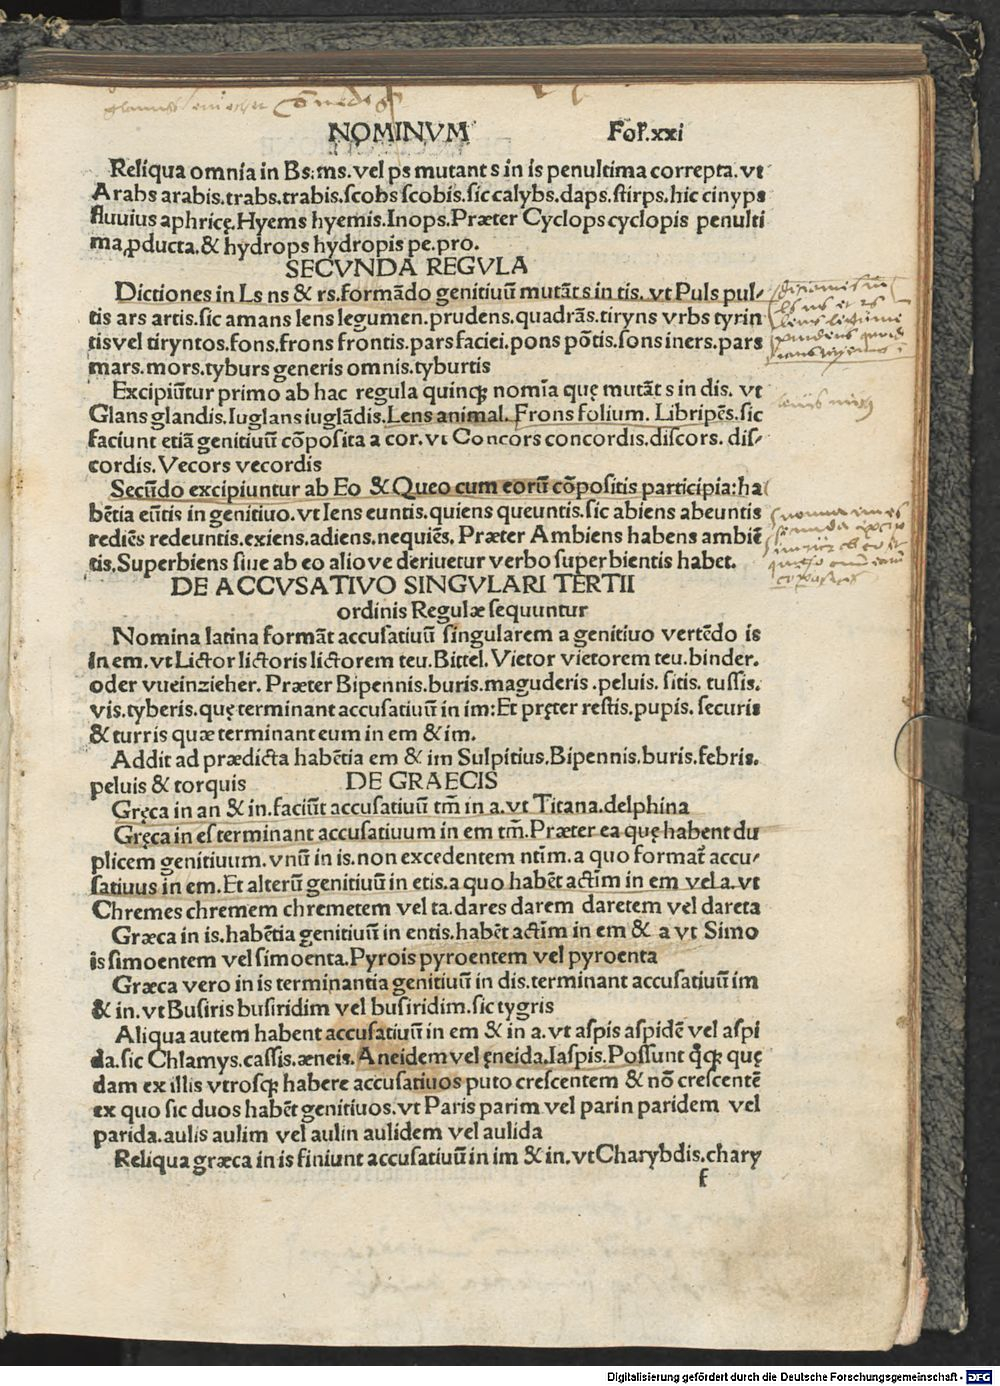 NOMINVM Fol̃.xxi
Reliqua omnia in Bs:ms.vel ps mutant s in is penultima correpta.vt
Arabs arabis.trabs.trabis.ſcobs ſcobis.ſic calybs.daps.ſtirps.hic cinyps
fluuius aphricę.Hyems hyemis.Inops.Præter Cyclops cyclopis penulti
ma,ꝓducta.& hydrops hydropis pe.pro.
SECVNDA REGVLA
Dictiones in Ls ns & rs.formādo genitiuū mutāt s in tis. vt Puls pul⸗
tis ars artis.ſic amans lens legumen.prudens.quadrās.tiryns vrbs tyrin
tis vel tiryntos.fons.frons frontis.pars faciei.pons pōtis.ſons iners.pars
mars.mors.tyburs generis omnis.tyburtis
Excipiūtur primo ab hac regula quinqꝫ nomīa quę mutāt s in dis. vt
Glans glandis.Iuglans iuglādis.Lens animal. Frons folium. Libripēs.ſic
faciunt etiā genitiuū cōpoſita a cor.vt Concors concordis.diſcors. diſ⸗
cordis.Vecors vecordis
Secūdo excipiuntur ab Eo & Queo cum eorū cōpoſitis participia:ha
bētia eūtis in genitiuo.vt Iens euntis.quiens queuntis.ſic abiens abeuntis
rediēs redeuntis.exiens.adiens.nequiēs. Præter Ambiens habens ambiē
tis.Superbiens ſiue ab eo alio ve deriuetur verbo ſuperbientis habet.
DE ACCVSATIVO SINGVLARI TERTII
ordinis Regulæ ſequuntur
Nomina latina formāt accuſatiuū ſingularem a genitiuo vertēdo is
in em.vt Lictor lictoris lictorem teu.Bittel. Vietor vietorem teu.binder.
oder vueinzieher. Præter Bipennis.buris.maguderis .peluis. ſitis. tuſſis.
vis.tyberis.quę terminant accuſatiuū in im:Et pręter reſtis.pupis. ſecuris
& turris quæ terminant eum in em & im.
Addit ad prædicta habētia em & im Sulpitius.Bipennis.buris.febris.
peluis & torquis DE GRAECIS
Gręca in an & in.faciūt accuſatiuū tm̄ in a.vt Titana.delphina
Gręca in eſ terminant accuſatiuum in em tm̄.Præter ea quę habent du
plicem genitiuum.vnū in is.non excedentem ntīm.a quo format̃ accu⸗
ſatiuus in em.Et alterū genitiuū in etis.a quo habēt actīm in em vel a.vt
Chremes chremem chremetem vel ta.dares darem daretem vel dareta
Græca in is.habētia genitiuū in entis.habēt actīm in em & a vt Simo
is ſimoentem vel ſimoenta.Pyrois pyroentem vel pyroenta
Græca vero in is terminantia genitiuū in dis.terminant accuſatiuū im
& in.vt Buſiris buſiridim vel buſiridim.ſic tygris
Aliqua autem habent accuſatiuū in em & in a.vt aſpis aſpidē vel aſpi
da.ſic Chlamys.caſſis.æneis.Aneidem vel ęneida.Iaſpis.Poſſunt q̄qꝫ quę
dam ex illis vtroſqꝫ habere accuſatiuos puto creſcentem & nō creſcentē
ex quo ſic duos habēt genitiuos.vt Paris parim vel parin paridem vel
parida.aulis aulim vel aulin aulidem vel aulida
Reliqua græca in is finiunt accuſatiuū in im & in.vt Charybdis.chary
f
Digitalisierung gefördert durch die Deutsche Forschungsgemeinschaft - DFG